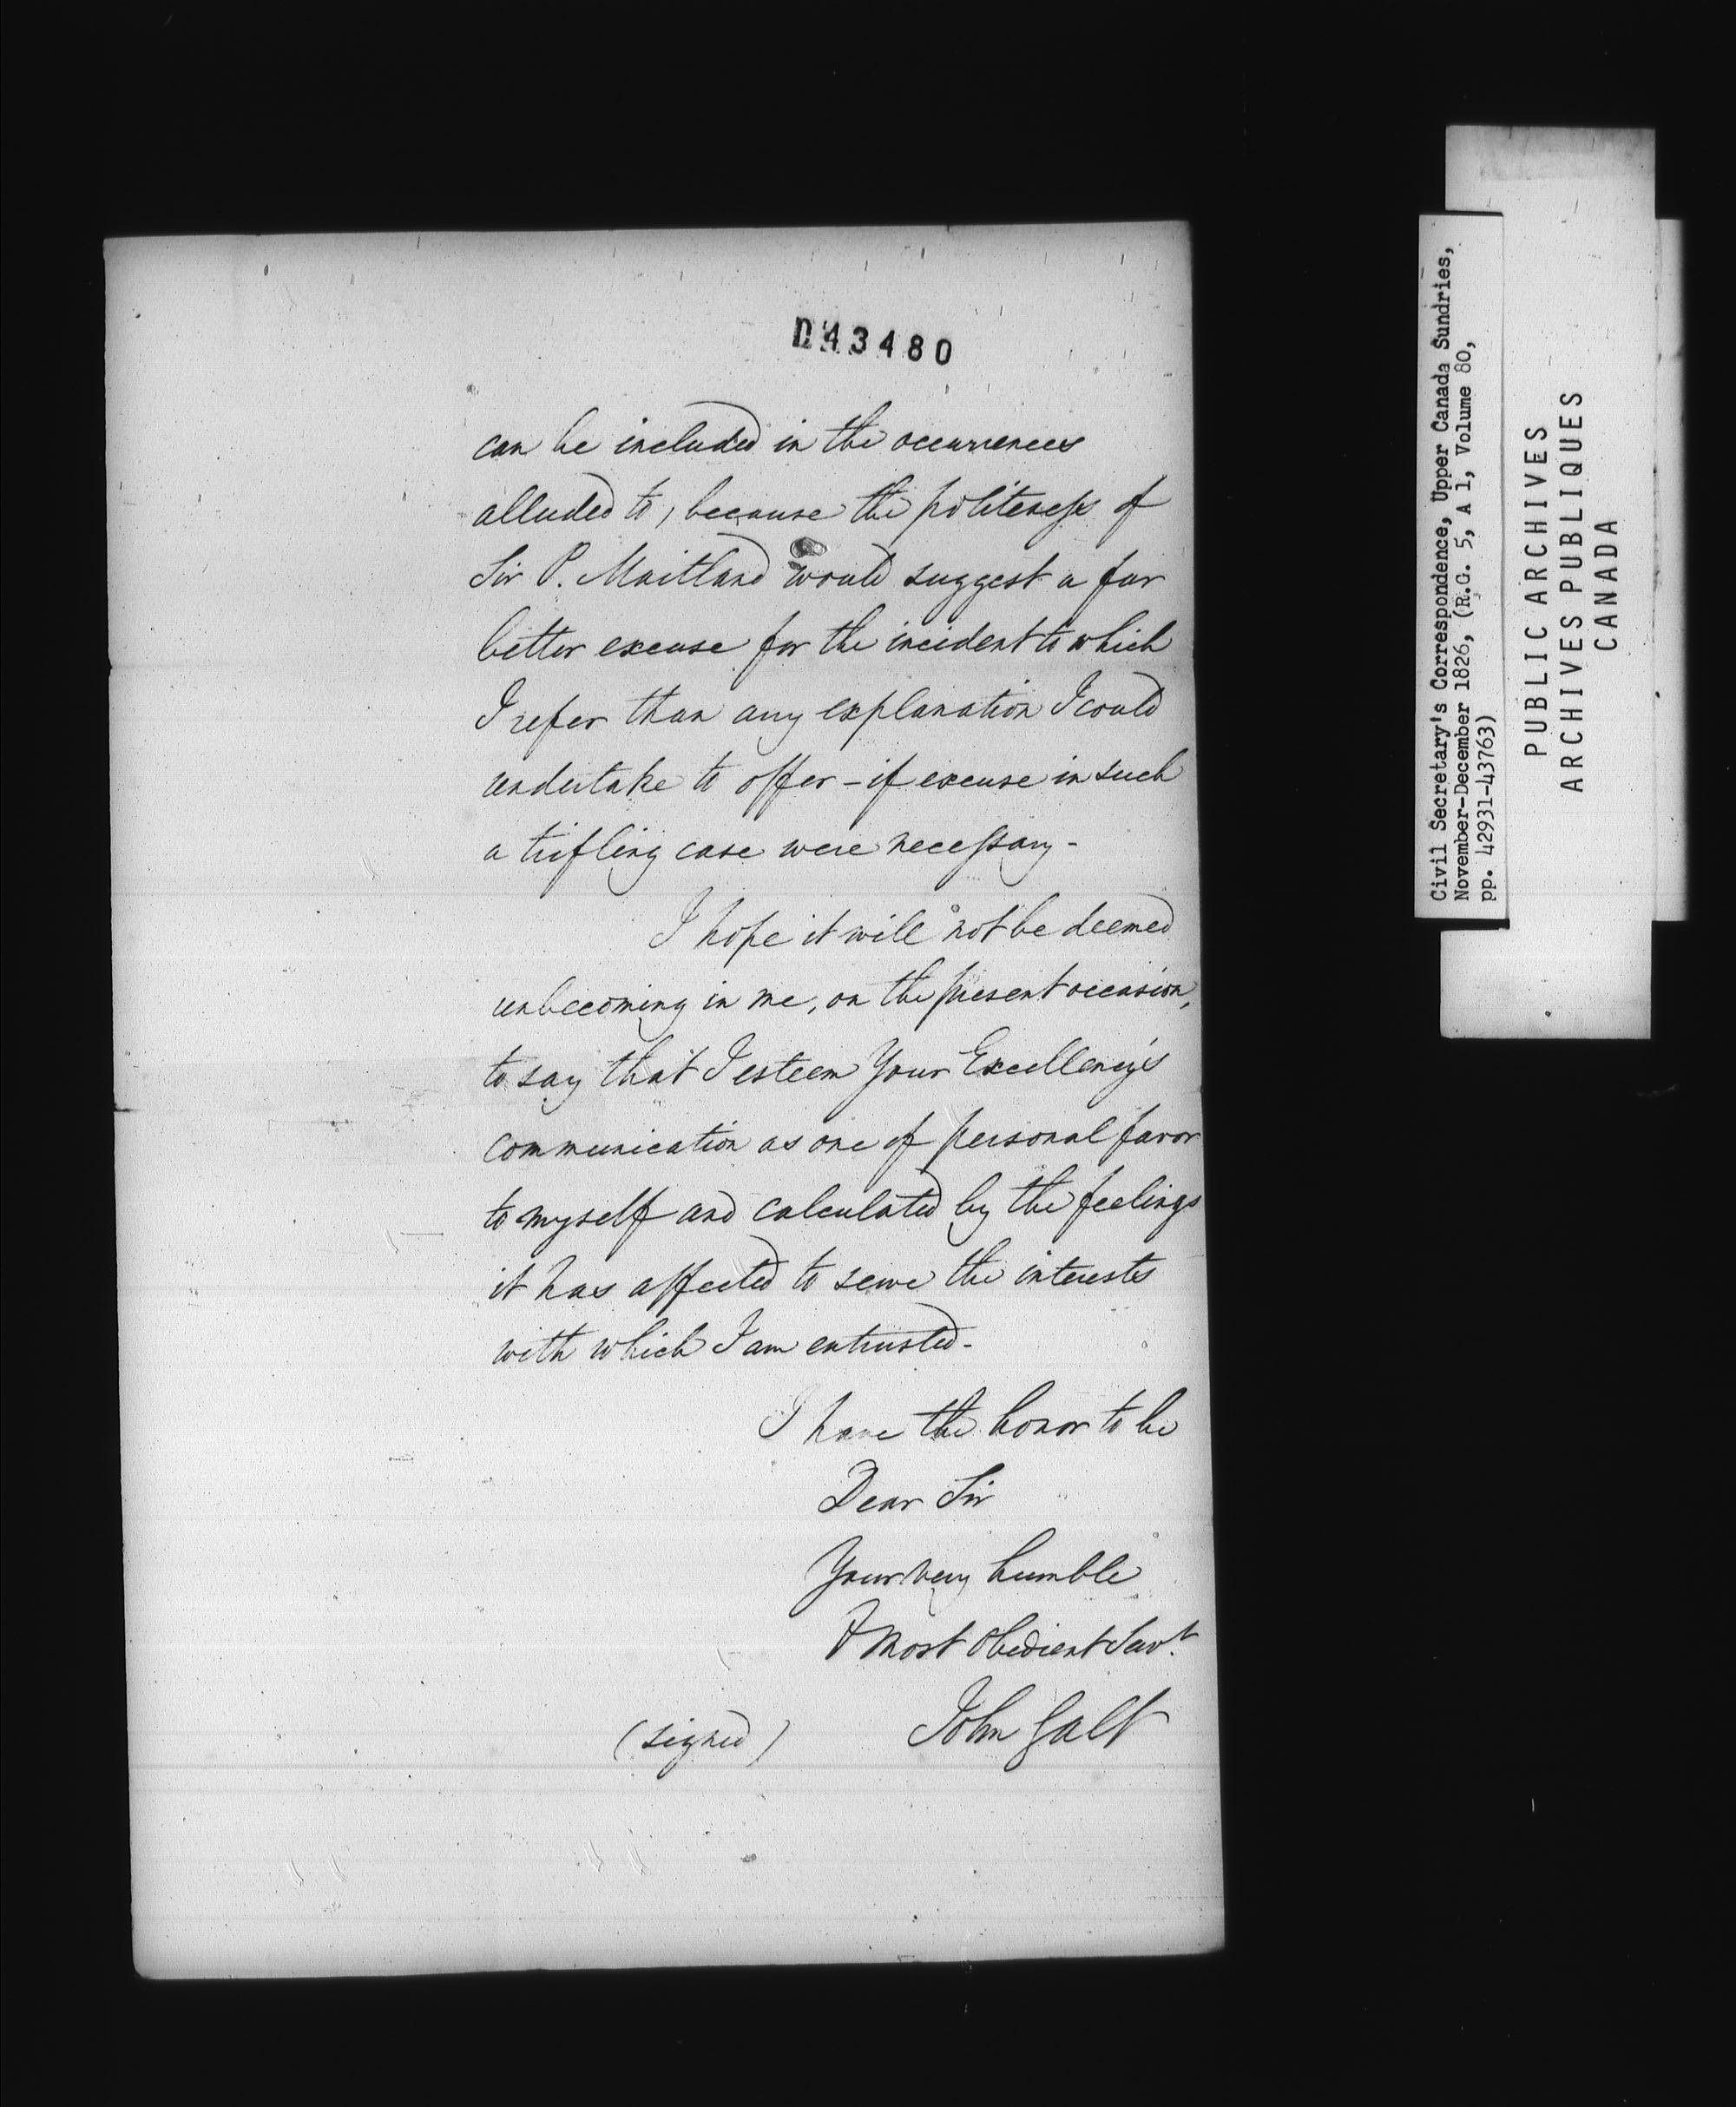 D43480
can be included in the occurrences
alluded to, because the politeness of
Sir P. Maitland would suggest a far
better excuse for the incident to which
I refer than any explanation I could
undertake to offer - if excuse in such
a trifling case were necessary -
I hope it will not be deemed
unbecoming in me, on the present occasion,
to say that I esteem Your Excellency's
communication as one of personal favor
to myself and calculated by the feelings
it has affected to serve the interests
with which I am entrusted -
I have the honor to be
Dear Sir
Your very humble
& most Obedient Servt.
(signed) John Galt
Civil Secretary's Correspondence, Upper Canada Sundries,
November-December 1826, (R.G. 5, A 1, Volume 80,
pp. 42931-43763)
PUBLIC ARCHIVES
ARCHIVES PUBLIQUES
CANADA